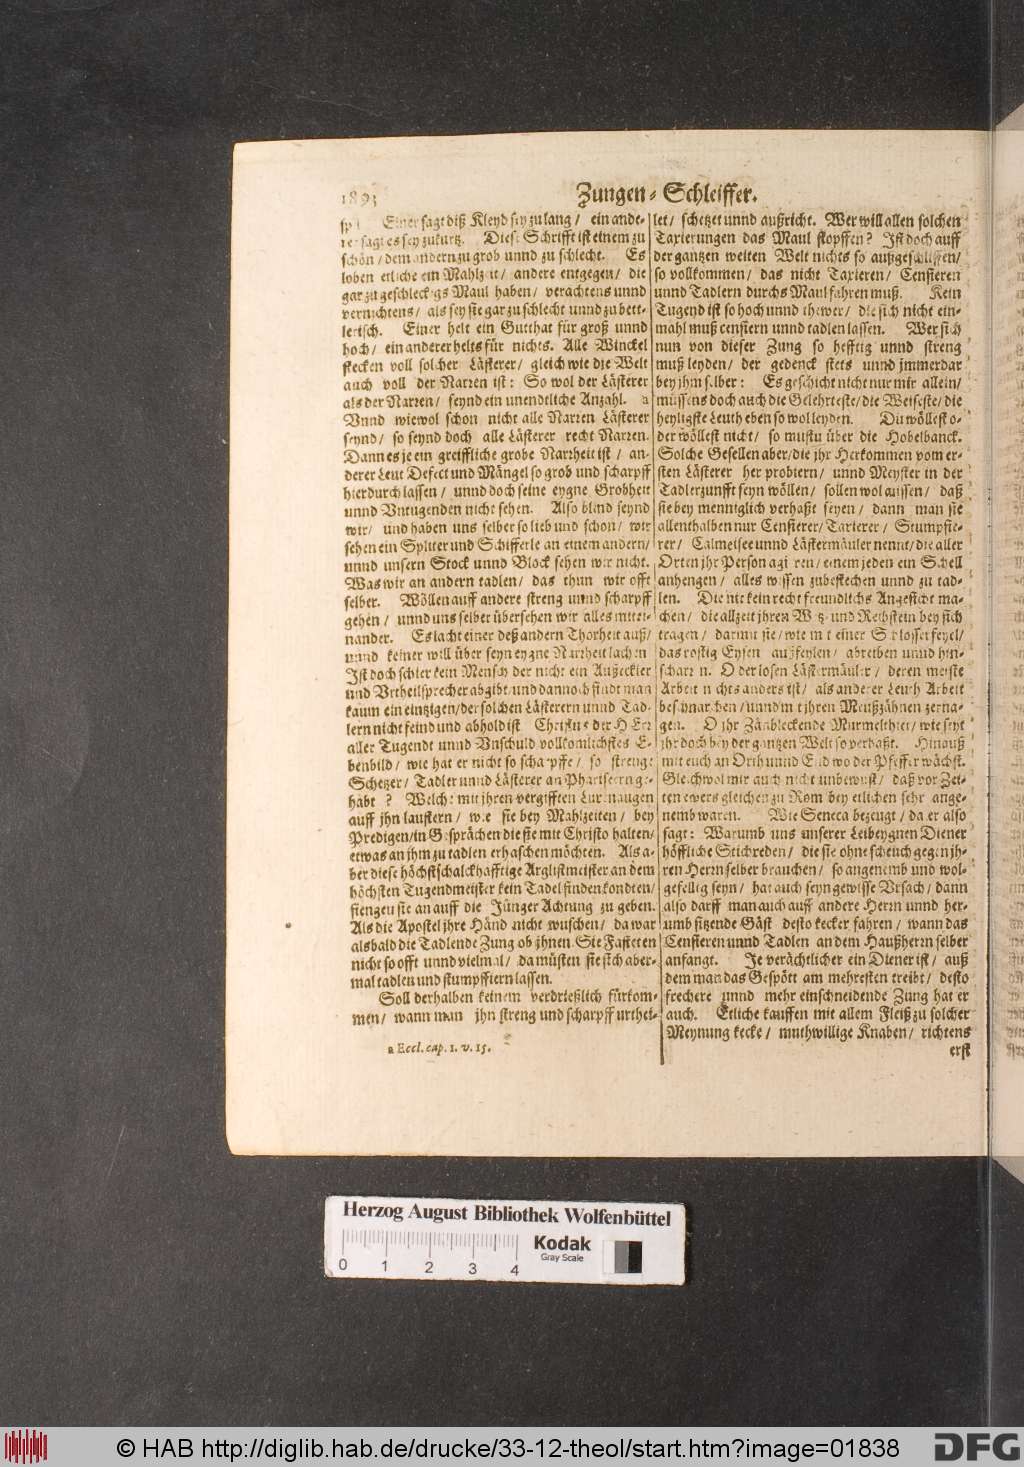 1893
Zungen-Schleiffer.
Einer sagt diß Kleyd sey zu lang/ ein ande-
rer sagt es sey zu kurtz. Diese Schrifft ist einem zu
schön/ dem andern zu grob unnd zu schlecht. Es
loben etliche ein Mahlzeit/ andere entgegen/ die
gar zu geschleckigs Maul haben/ verachtens unnd
vernichtens/ als sey sie gar zu schlecht unnd zu bett-
lerisch. Einer helt ein Gutthat für groß unnd
hoch/ ein anderer helts für nichts. Alle Winckel
stecken voll solcher Lästerer/ gleich wie die Welt
auch voll der Narren ist: So wol der Lästerer
als der Narren/ seynd ein unendtliche Anzahl. a
Vnnd wiewol schon nicht alle Narren Lästerer
seynd/ so seynd doch alle Lästerer recht Narren.
Dann es je ein greiffliche grobe Narrheit ist/ an-
derer Leut Defect und Mängel so grob und scharpff
hierdurch lassen/ unnd doch seine eygne Grobheit
unnd Vntugenden nicht sehen. Also blind seynd
wir/ und haben uns selber so lieb und schon/ wir
sehen ein Splitter und Schifferle an einem andern/
unnd unsern Stock unnd Block sehen wir nicht.
Was wir an andern tadlen/ das thun wir offt
selber. Wöllen auff andere streng unnd scharpff
gehen/ unnd uns selber übersehen wir alles mitei-
nander. Es lacht einer deß andern Thorheit auß/
unnd keiner will über seyn eygne Narrheit lachen
Ist doch schier kein Mensch der nicht ein Außeckler
und Vrtheilsprecher abgibt/ und dannoch findt man
kaum ein eintzigen/ der solchen Lästerern unnd Tad-
lern nicht feind und abhold ist Christus der HErr
aller Tugendt unnd Vnschuld vollkomlichstes E-
benbild/ wie hat er nicht so scharpffe/ so strenge
Schetzer/ Tadler unnd Lästerer an Phariseern ge-
habt? Welche mit jhren vergifften Luchsnaugen
auff jhn laustern/ wie sie bey Mahlzeiten/ bey
Predigen/ in Gesprächen die sie mit Christo halten/
etwas an jhm zu tadlen erhaschen möchten. Als a-
ber diese höchstschalckhafftige Arglistmeister an dem
höchsten Tugendmeister kein Tadel finden kondten/
fiengen sie an auff die Jünger Achtung zu geben.
Als die Apostel jhre Händ nicht wuschen/ da war
alsbald die Tadlende Zung ob jhnen. Sie Fasteten
nicht so offt unnd vielmal/ da müsten sie sich aber-
mal tadlen und stumpffiern lassen.
Soll derhalben keinem verdrießlich fürkom-
men/ wann man jhn streng und scharpff urthei-
a Eccl. cap. 1. v. 15.
let/ schetzet unnd außricht. Wer will allen solchen
Taxierungen das Maul stopffen? Ist doch auff
der gantzen weiten Welt nichts so außgeschliffen/
so vollkommen/ das nicht Taxieren/ Censieren
unnd Tadlern durchs Maul fahren muß. Kein
Tugend ist so hoch unnd thewer/ die sich nicht ein-
mahl muß censiern unnd tadlen lassen. Wer sich
nun von dieser Zung so hefftig unnd streng
muß leyden/ der gedenck stets unnd jmmerdar
bey jhm selber: Es geschicht nicht nur mir allein/
müssens doch auch die Gelehrteste/ die Weiseste/ die
heyligste Leuth eben so wol leyden. Du wöllest o-
der wöllest nicht/ so mustu über die Hobelbanck.
Solche Gesellen aber/ die jhr Herkommen vom er-
sten Lästerer her probiern/ unnd Meyster in der
Tadlerzunfft seyn wöllen/ sollen wol wissen/ daß
sie bey menniglich verhaßt seyen/ dann man sie
allenthalben nur Censierer/ Taxierer/ Stumpfie-
rer/ Calmeiser unnd Lästermäuler nennt/ die aller
Orten jhr Person agiren/ einem jeden ein Schell
anhengen/ alles wissen zubestechen unnd zu tad-
len. Die nie kein recht freundlichs Angesicht ma-
chen/ die allzeit jhren Wetz- und Reibstein bey sich
tragen/ darmit sie/ wie mit einer Schlosserfeyel/
das rostig Eysen außfeylen/ abreiben unnd hin-
scharren. O der losen Lästermäuler/ deren meiste
Arbeit nichts anders ist/ als anderer Leuth Arbeit
beschnarchen/ unnd mit jhren Meußzähnen zerna-
gen. O jhr Zänbleckende Murmelthier/ wie seyt
jhr doch bey der gantzen Welt so verhaßt. Hinauß
mit euch an Orth unnd End wo der Pfeffer wächst.
Gleichwol mir auch nicht unbewust/ daß vor Zei-
ten ewers gleichen zu Rom bey etlichen sehr ange-
nemb waren. Wie Seneca bezeugt/ da er also
sagt: Warumb uns unserer Leibeygnen Diener
höffliche Stichreden/ die sie ohne scheuch gegen jh-
ren Herrn selber brauchen/ so angenemb und wol-
gefellig seyn/ hat auch seyn gewisse Vrsach/ dann
also darff man auch auff andere Herrn unnd her-
umb sitzende Gäst desto kecker fahren/ wann das
Censieren unnd Tadlen an dem Haußherrn selber
anfangt. Je verächtlicher ein Diener ist/ auß
dem man das Gespött am mehresten treibt/ desto
frechere unnd mehr einschneidende Zung hat er
auch. Etliche kauffen mit allem Fleiß zu solcher
Meynung kecke/ muthwillige Knaben/ richtens
erst
Herzog August Bibliothek Wolfenbüttel
Kodak
Gray Scale
0 1 2 3 4
© HAB http://diglib.hab.de/drucke/33-12-theol/start.htm?image=01838
DFG